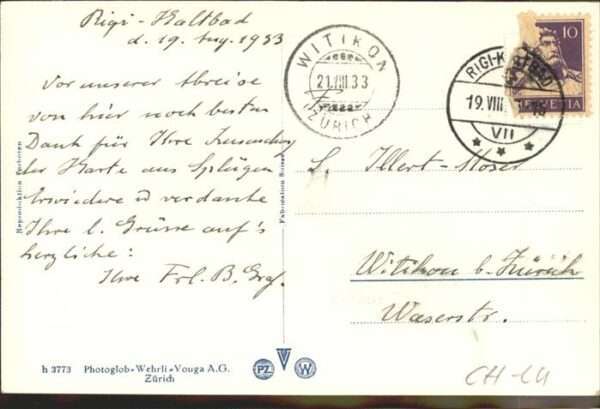 Rigi-Kaltbad
d. 19. Aug. 1933
Vor unserer Abreise
von hier noch besten
Dank für Ihre Zusendung
der Karte aus Splügen
Erwiedere & verdanke
Ihre l. Grüsse auf's
herzliche:
Ihre Frl. B. Graf.
WITIKON
21.VIII 33
(ZÜRICH)
10
HELVETIA
RIGI-KALTBAD
19.VIII.
VII
Illert-Moser
Witikon b. Zürich
Waserstr.
Reproduktion verboten
h 3773 Photoglob-Wehrli-Vouga A.G.
Zürich
PZ V W
CH-LU